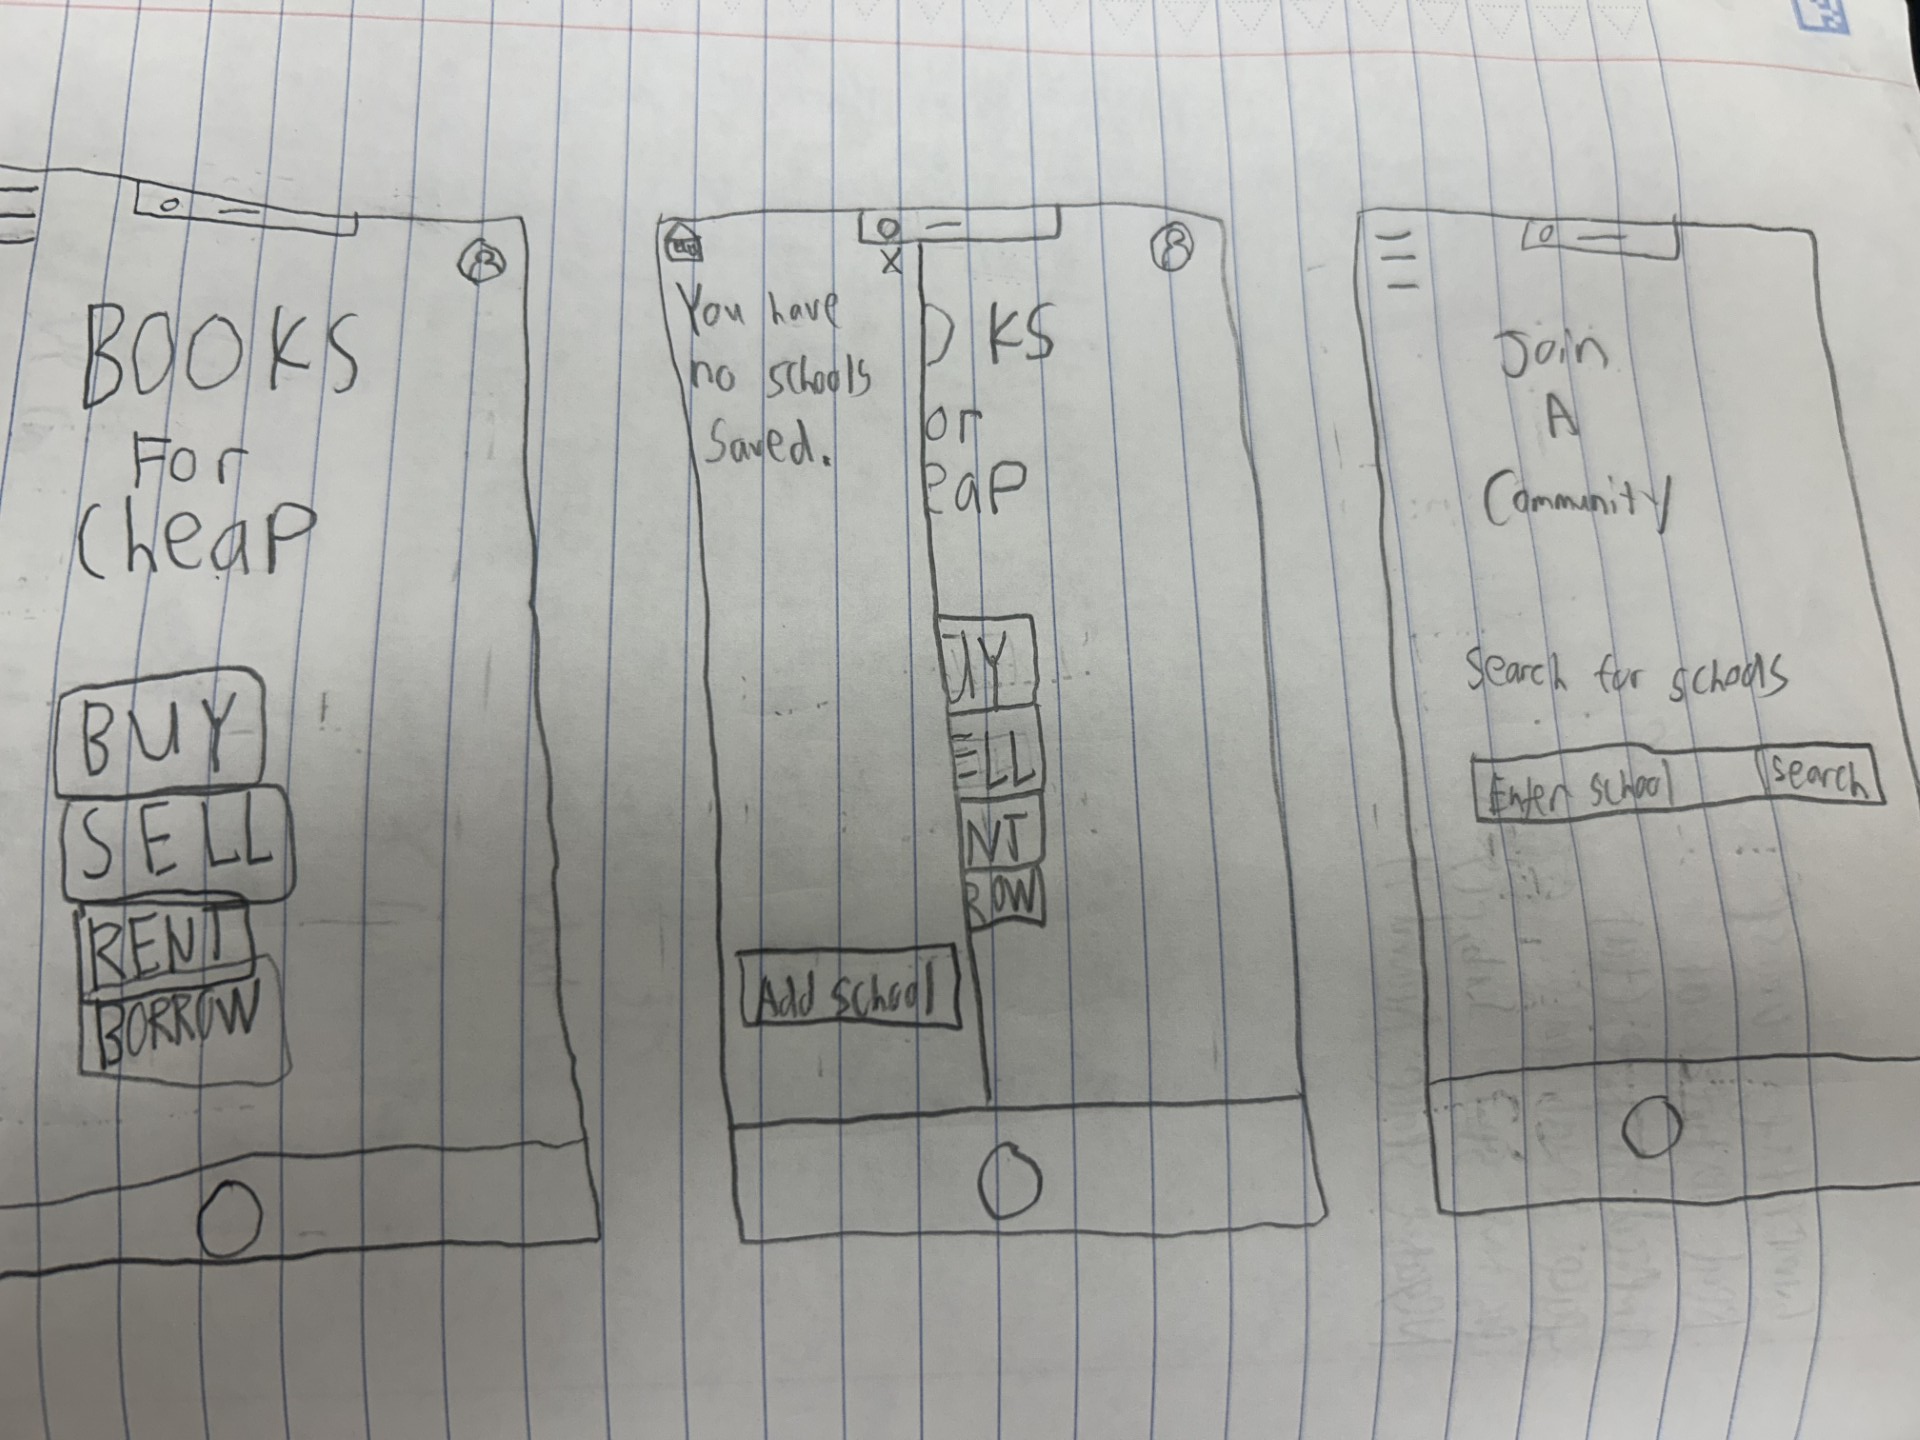 BOOKS
For
Cheap
BUY
SELL
RENT
BORROW
X
You have
no schools
Saved.
Add school
OKS
or
eaP
UY
ELL
NT
ROW
Join
A
Community
Search for schools
Enter school
search